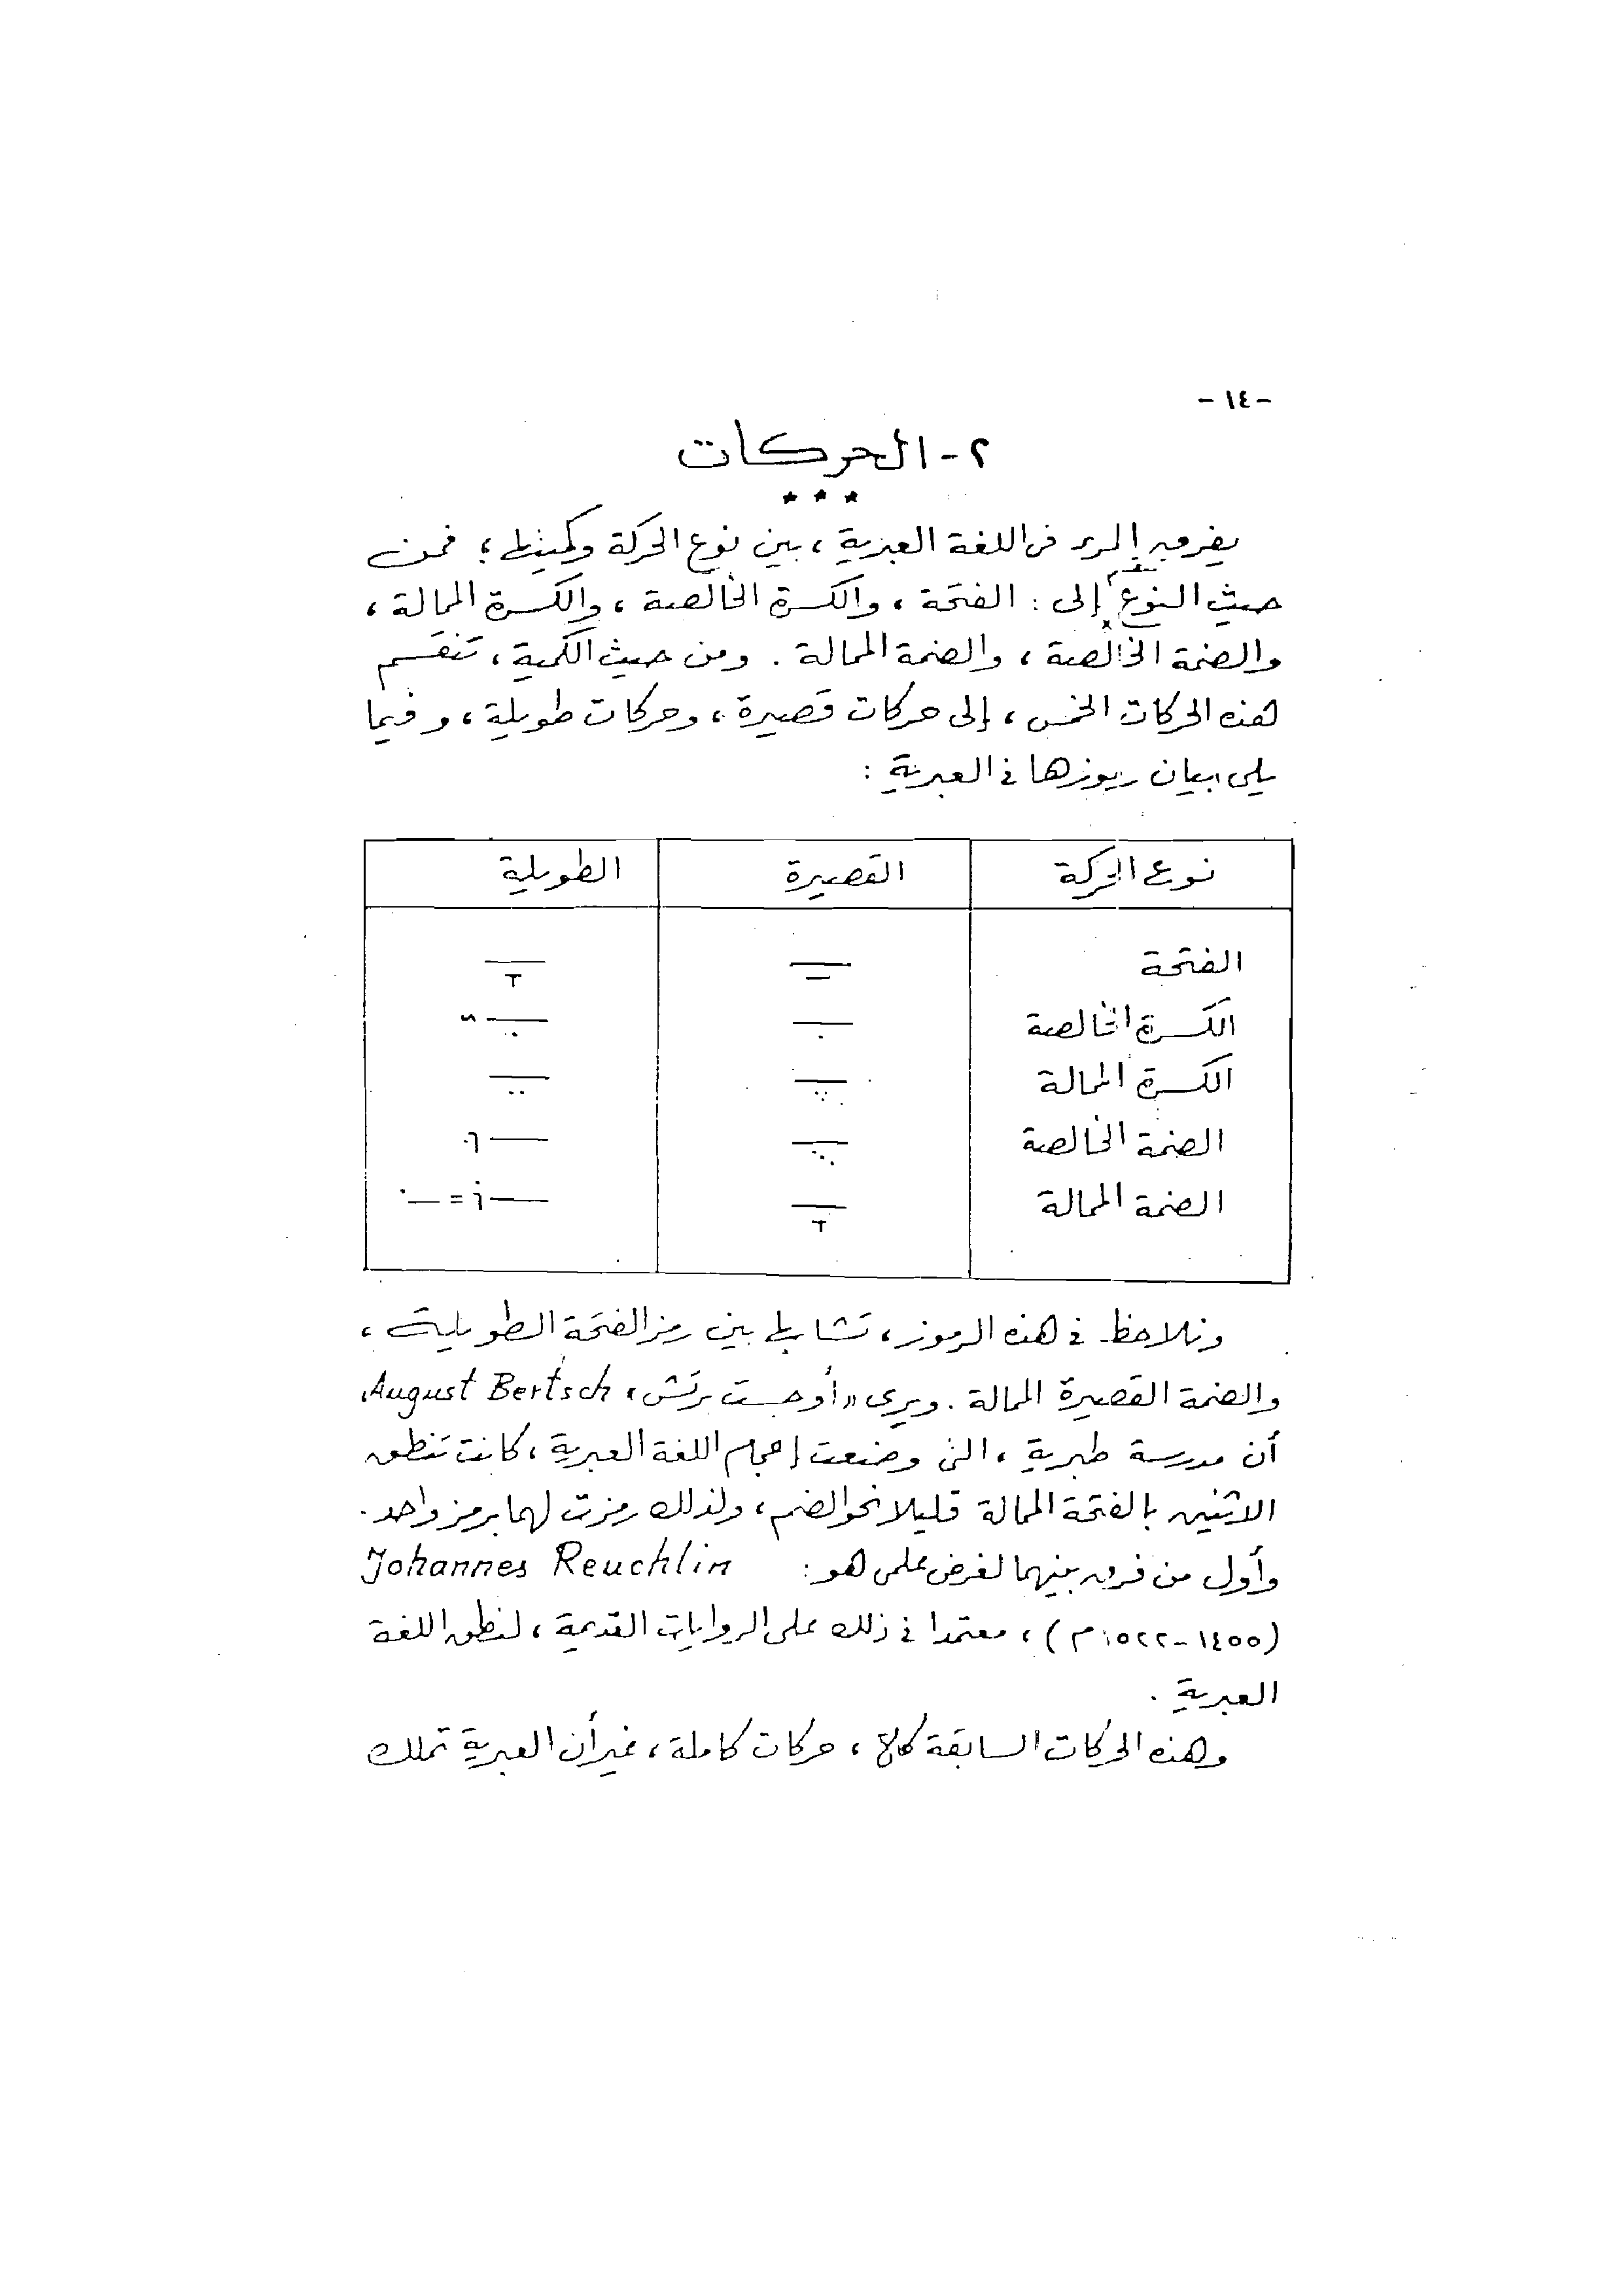 - ١٤ -
٢ - الحركات
* * *
يفرق المرء فى اللغة العبرية ، بين نوع الحركة وكميتها ؛ فمن
حيث النوع تنقسم إلى : الفتحة ، والكسرة الخالصة ، والكسرة الممالة ،
والضمة الخالصة ، والضمة الممالة . ومن حيث الكمية ، تنقسم
هذه الحركات الخمس ، إلى حركات قصيرة ، وحركات طويلة ، وفيما
يلى بيان رموزها فى العبرية :
نوع الحركة القصيرة الطويلة
الفتحة ــַ ــָ
الكسرة الخالصة ــִ ــִי
الكسرة الممالة ــֶ ــֵ
الضمة الخالصة ــֻ ــוּ
الضمة الممالة ــָ ــוֹ = ــֹ
ونلاحظ فى هذه الرموز ، تشابها بين رمز الفتحة الطويلة ،
والضمة القصيرة الممالة . ويرى « أوجست برتش » August Bertsch ،
أن مدرسة طبرية ، التى وضعت إعجام اللغة العبرية ، كانت تنطق
الاثنين بالفتحة الممالة قليلا نحو الضم ، ولذلك رمزت لهما برمز واحد .
وأول من فرق بينهما لغرض علمى هو : Johannes Reuchlin
(١٤٥٥ - ١٥٢٢ م) ، معتمدا فى ذلك على الروايات القديمة ، لنطق اللغة
العبرية .
وهذه الحركات السابقة كلها ، حركات كاملة ، غير أن العبرية تملك